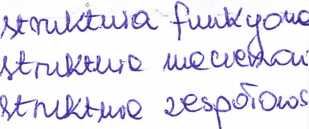 struktura funkcyona
struktura macierzow
struktura zespołows